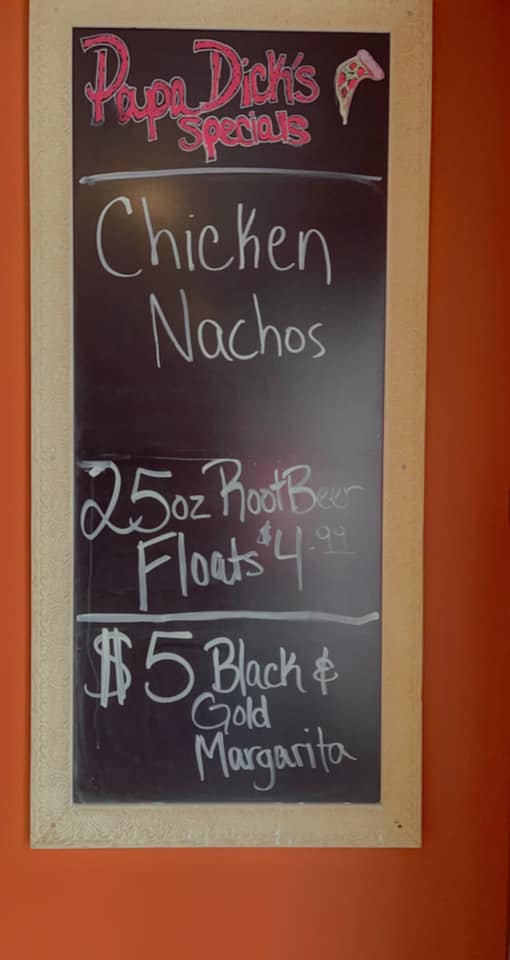 Papa Dick's
Specials
Chicken
Nachos
25oz Root Beer
Floats $4.99
$5 Black &
Gold
Margarita